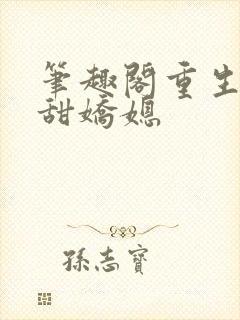 筆趣閣重生
甜嬌媳
孫志寶